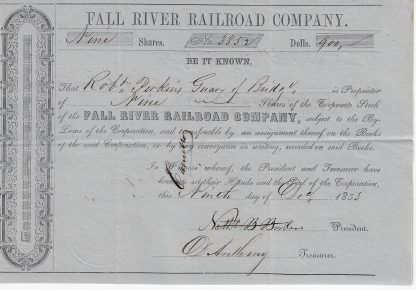 FALL RIVER RAILROAD COMPANY.
Nine Shares. No. 3852 Dolls. 900,
BE IT KNOWN.
That Robt. Perkins, Guar. of Bridge is Proprietor
of Nine Shares of the Corporate Stock
of the FALL RIVER RAILROAD COMPANY, subject to the By-
Laws of the Corporation, and transferable by an assignment thereof on the Books
of the said Corporation, or by any conveyance in writing, recorded on said Books.
In Witness whereof, the President and Treasurer have
hereunto set their Hands and the Seal of the Corporation,
this Ninth day of 1853
Nathl. B. Borden President.
D Anthony Treasurer.